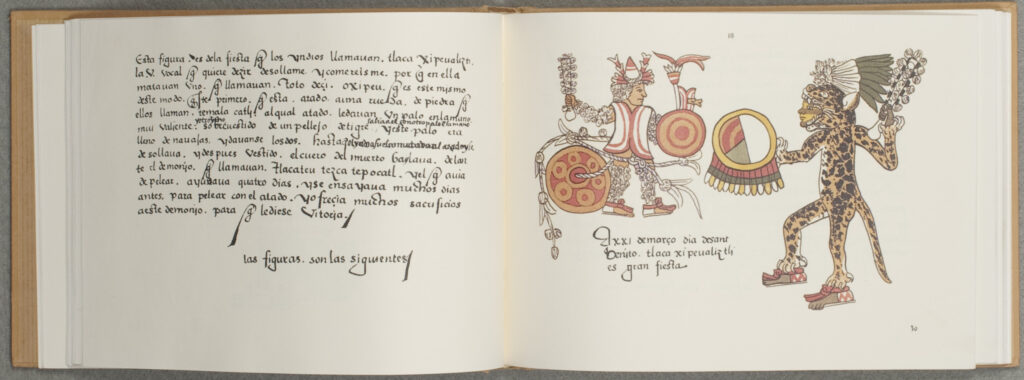 Esta figura es dela fiesta q̃ los yndios llamauan, tlaca xipeualizn,
la V. vocal q̃ quiere dezir desollame ycomereisme. por q̃ en ella
matauan vno. q̃ llamauan. toto deçi. oxipeu. q̃ es este mismo
deste modo. este primero. q̃ esta. atado. auna rueda, de piedra q̃
ellos llaman. temala catl. alqual atado. ledauan vn palo enlamano
muy valiente. so de un pellejo detigre yeste palo era
lleno de nauajas. ydauanse losdos. hasta
de sollaua. ydespues vestido. elcuero del muerto baylaua. delan
te el demonio. q̃ llamauan. tlacateu tezca tepocatl. yel q̃ auia
de pelear. ayunaua quatro dias. yse ensayaua muchos dias
antes. para pelear conel atado. yofreçia muchos sacrificios
aeste demonio. para q̃ lediese Vitoria
las figuras. son las siguientes
18
A xxi demarço dia desant
benito. tlaca xipeualiztli
es gran fiesta
30